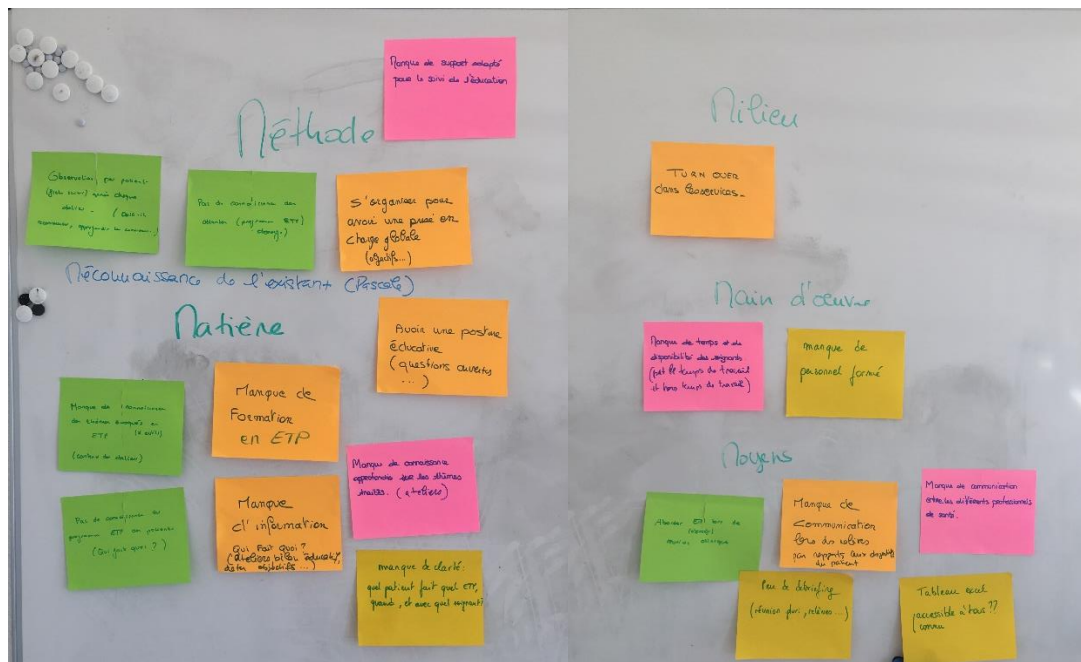 Manque de support adapté
pour le suivi de l'éducation
Méthode
Observation par patient
(fiche suivi) après chaque
atelier.
Pas de connaissance des
attentes (programme ETP)
S'organiser pour
avoir une prise en
charge globale
(objectifs...)
Méconnaissance de l'existant (Pascale)
Matière
Avoir une posture
éducative
(questions ouvertes
...)
Manque de connaissances
en thèmes évoqués en
ETP
(contenu des ateliers)
Manque de
Formation
en ETP
Manque de connaissance
approfondie sur les thèmes
traités. (ateliers)
Pas de connaissance du
programme ETP
(Qui fait quoi ?)
Manque
d'information
Qui Fait quoi ?
(ateliers bilan éducatif,
objectifs...)
manque de clarté:
quel patient fait quel ETP,
quand, et avec quel soignant?
Milieu
TURN OVER
dans les services_
Main d'œuvre
Manque de temps et de
disponibilité des soignants
(sur le temps de travail
et hors temps de travail)
manque de
personnel formé
Moyens
Aborder ETP lors de
Manque de
Communication
lors des relèves
par rapports aux objectifs
du patient
Manque de communication
entre les différents professionnels
de santé.
Peu de debriefing
(réunion pluri, relèves...)
Tableau excel
accessible à tous ??
connu